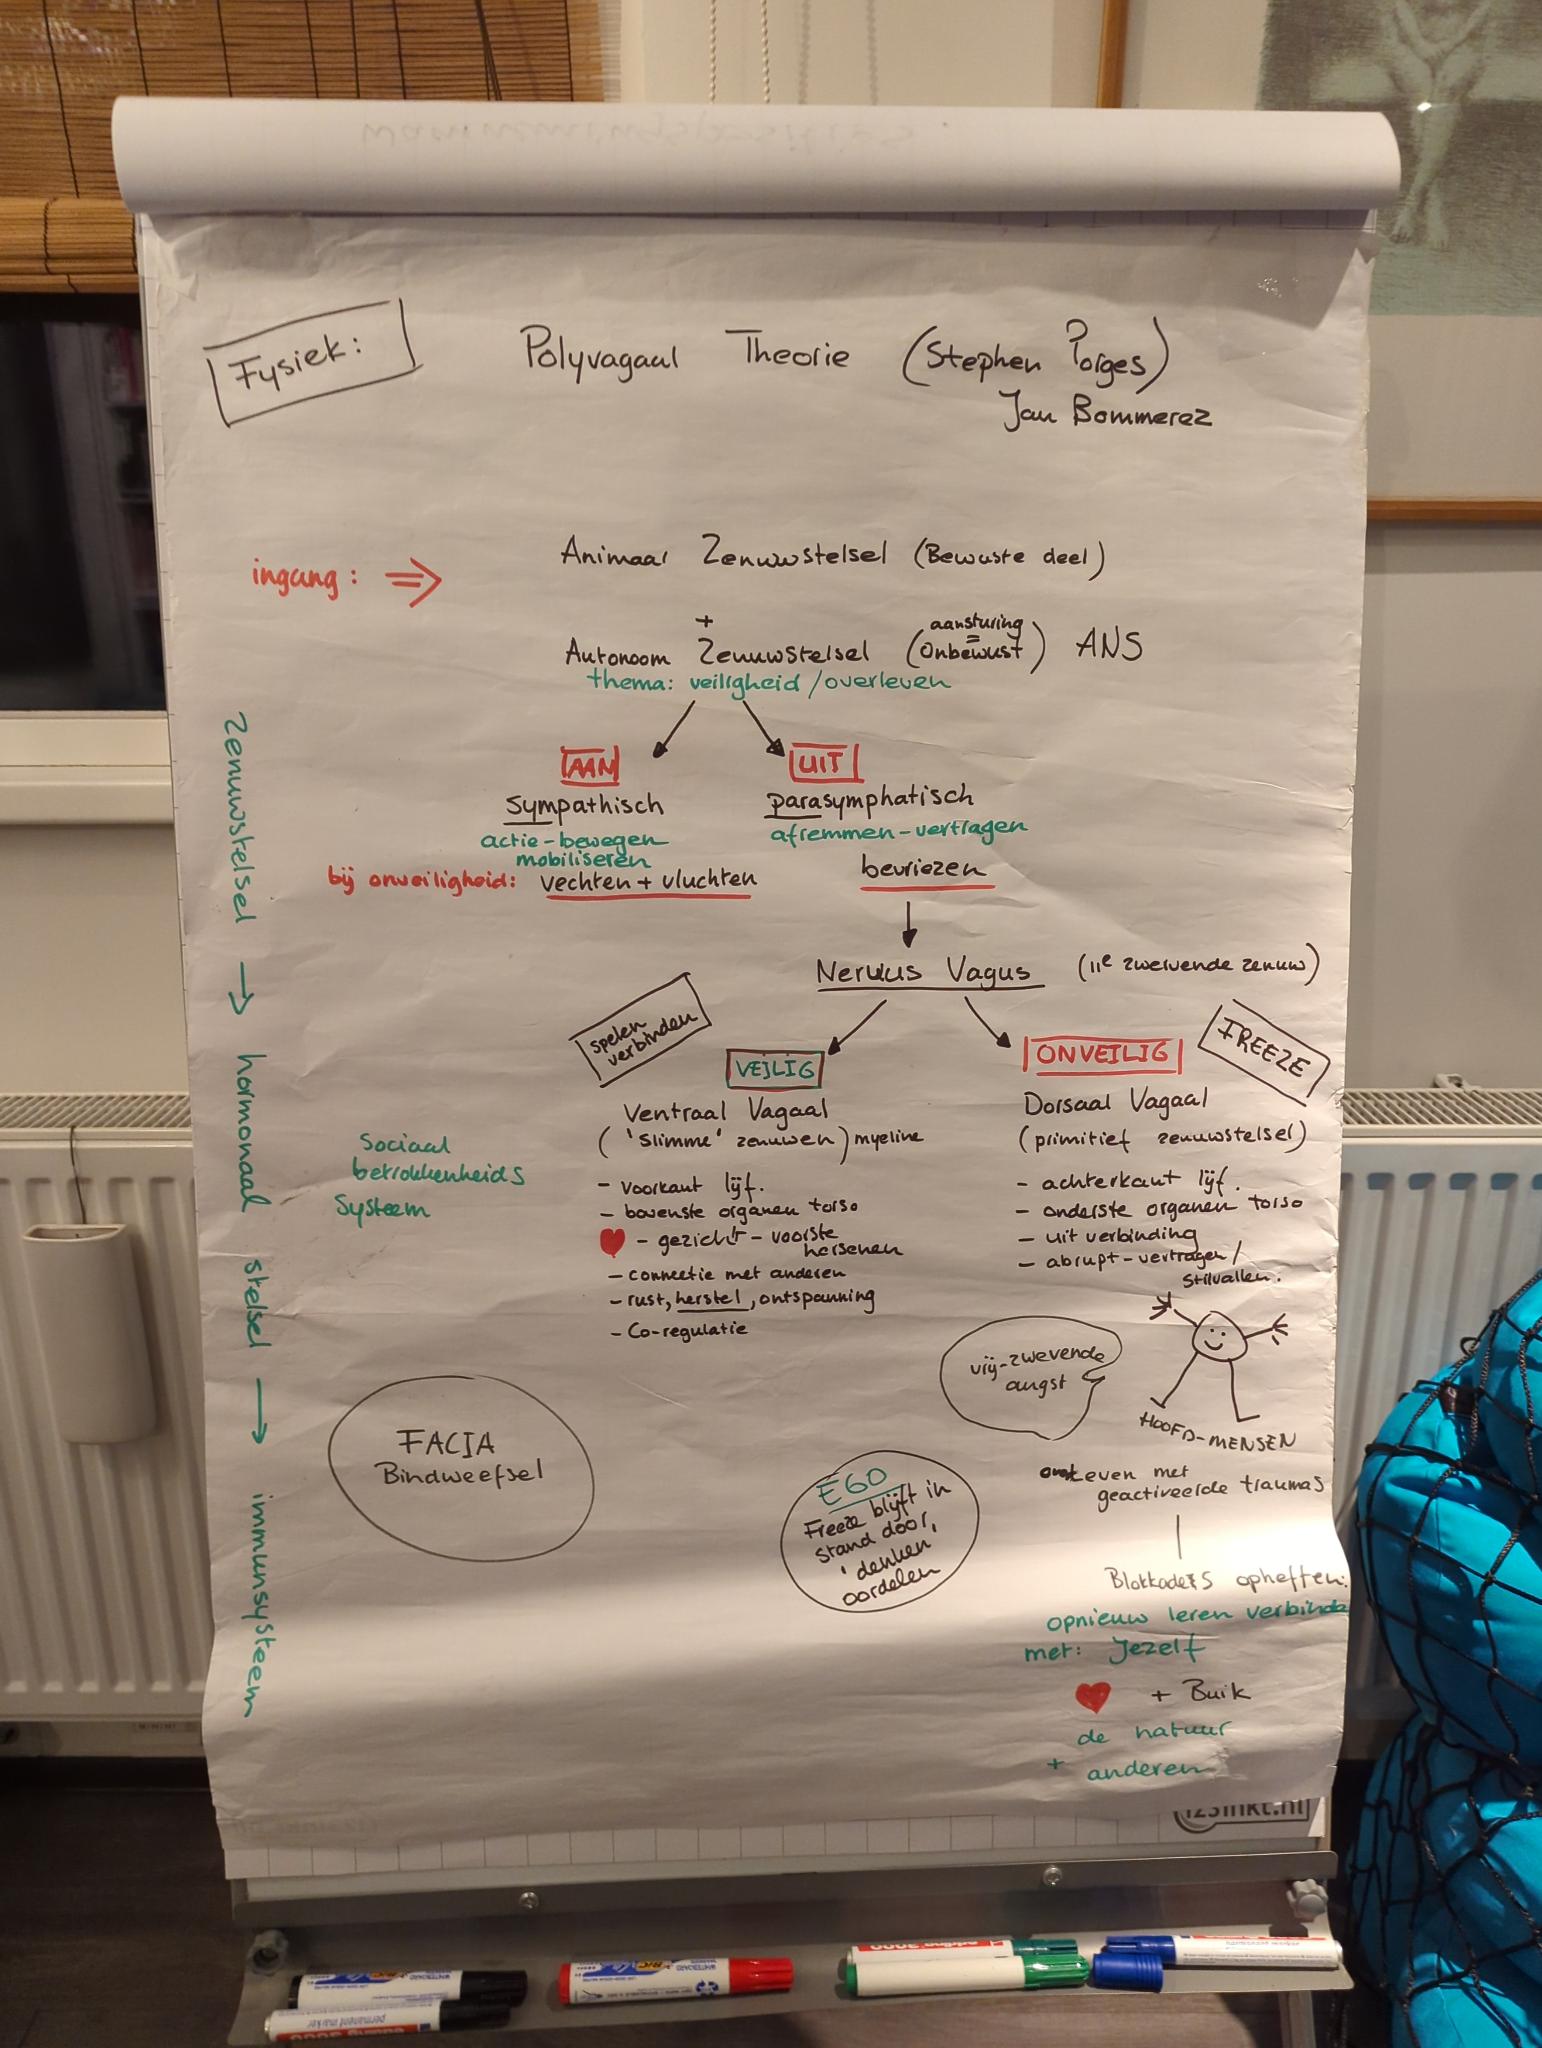 Fysiek:
Polyvagaal Theorie (Stephen Porges)
Jan Bommerez
ingang: ⇒
Animaal Zenuwstelsel (Bewuste deel)
+
Autonoom Zenuwstelsel (aansturing = onbewust) ANS
thema: veiligheid/overleven
AAN
UIT
sympathisch
parasymphatisch
actie-bewegen
mobiliseren
afremmen-vertragen
bij onveiligheid: vechten + vluchten
bevriezen
Nervus Vagus (11e zwervende zenuw)
spelen
verbinden
VEILIG
ONVEILIG
FREEZE
Ventraal Vagaal
('slimme' zenuwen) myeline
- voorkant lijf.
- bovenste organen torso
♥ - gezicht - voorste
hersenen
- connectie met anderen
- rust, herstel, ontspanning
- Co-regulatie
Dorsaal Vagaal
(primitief zenuwstelsel)
- achterkant lijf.
- onderste organen torso
- uit verbinding
- abrupt-vertragen/
stilvallen.
Sociaal
betrokkenheids
systeem
zenuwstelsel → hormonaal stelsel → immunsysteem
FACIA
Bindweefsel
vrij-zwevende
angst
HOOFD-MENSEN
EGO
Freeze blijft in
stand door,
' denken
oordelen
overleven met
geactiveerde traumas
Blokkades opheffen:
opnieuw leren verbinde
met: Jezelf
♥ + Buik
de natuur
+ anderen
123inkt.nl
edding 3000
permanent marker
edding 3000
BIC
WHITEBOARD